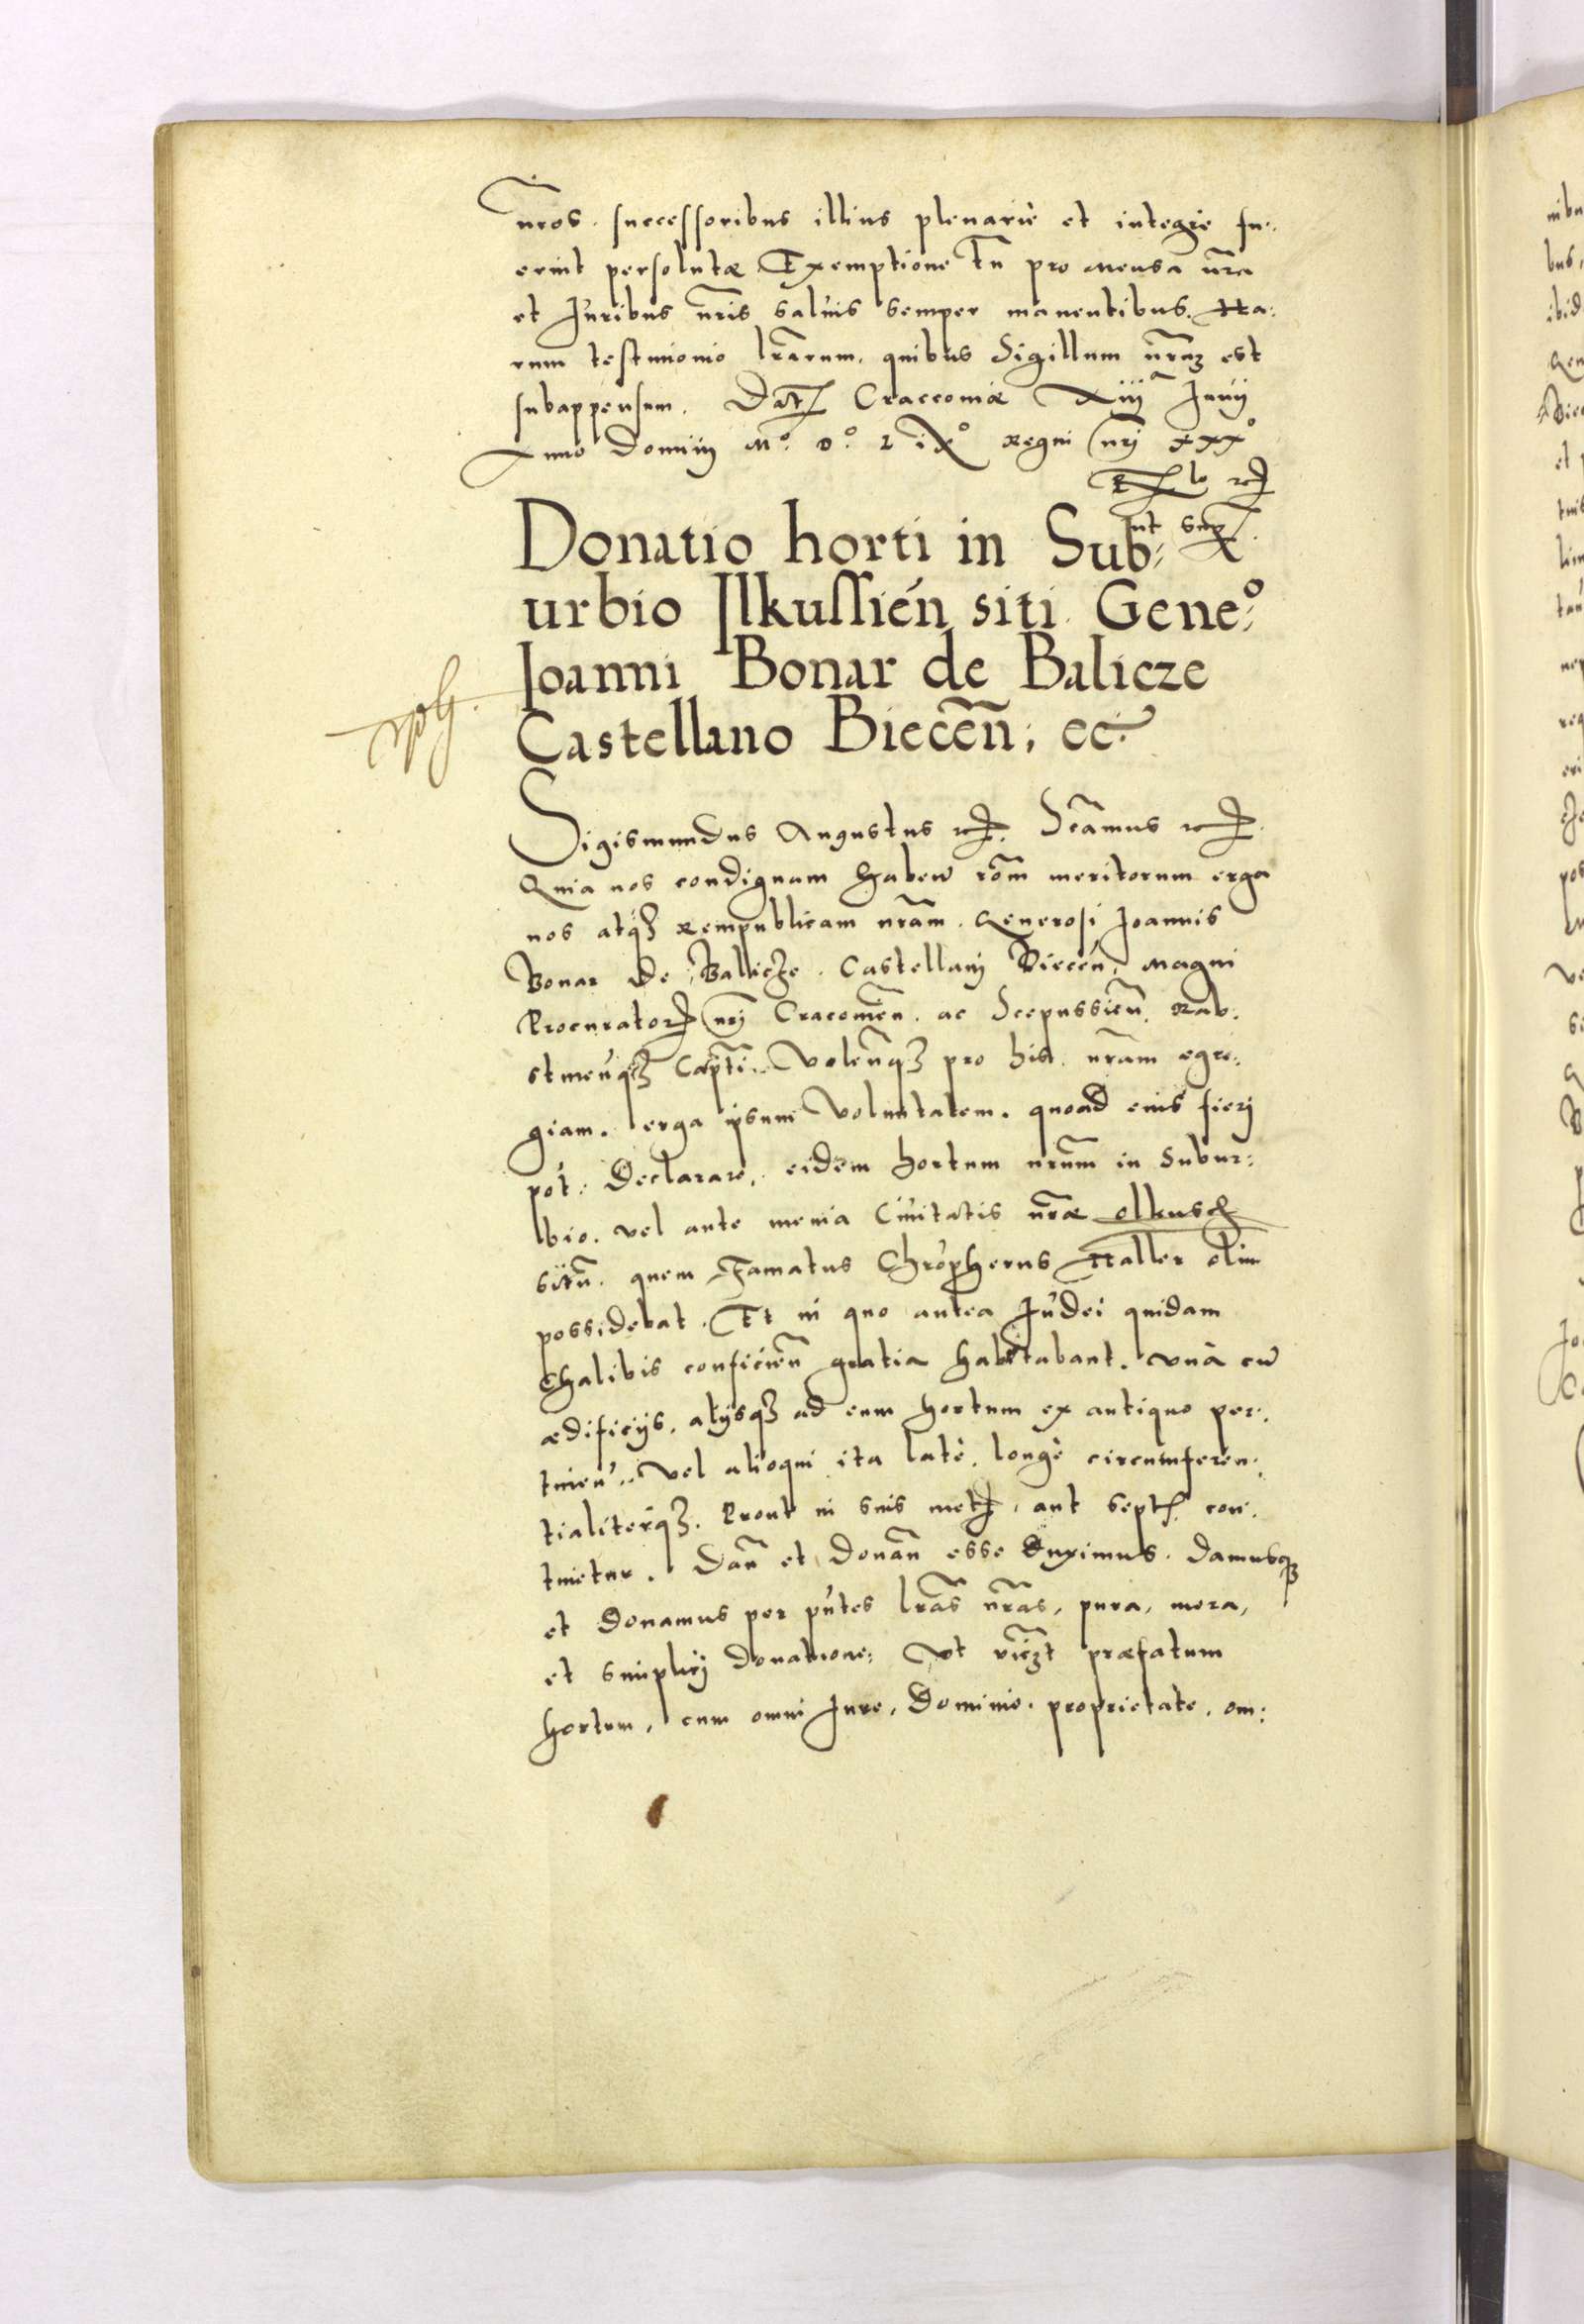 nros. successoribus illius plenariè et integrè fu:
erint persolutæ Exemptione tn̄ pro mensa nr̄a
et Juribus nr̄is saluis semper manentibus. Ha:
rum testimonio lr̄arum. quibus Sigillum nr̄ūz est
subappensum. Dat Craccoviæ Xiij Junij
Anno Dominj M° D° L iX° regni nrj xxx°
ut sup
Donatio horti in Sub:
urbio Ilkussień siti Gene:°
Joanni Bonar de Balicze
Castellano Biecen̄; ec
Sigismundus Augustus rc. Scāmus rc.
Quia nos condignam habeń rōm meritorum erga
nos atq̃ʒ Rempublicam nr̄am. Generosi Joannis
Bonar de Balicze. Castellanj Biecēn, Magni
Procurator nrj Cracovien̄. ac Scepussien̄. Rab:
stineńqʒ Cap̄ti. Volen̄qʒ pro his. nr̄am egre:
giam. erga ipsum Voluntatem. quoad eius fierj
pot́. Declarare, eidem hortum nr̄um in Subur:
bio. vel ante menia Ciuitatis nr̄æ olkusch
sitū. quem Famatus Chrōpherus Haller olim
possidebat. Et in quo antea Judei quidam
Chalibis conficien̄ gratia habitabant. vnà cū
ædificijs. alijsqʒ ad eum hortum ex antiquo per:
tineń. Vel alioqui ita latè, longè circumferen:
tialiterq̃ʒ. Prout in suis met, aut sept con:
tinetur. Dan̄ et Donan̄ esse Duximus. Damusqʒ
et Donamus per pn̄tes lr̄as nr̄as, pura, mera,
et simplicj donatione: Vt viczt præfatum
hortum, cum omni Jure, Dominio. proprietate, om: